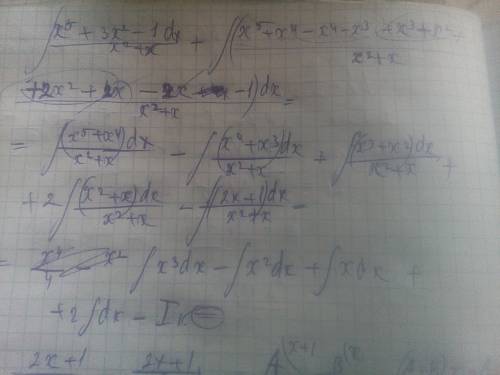 ∫ (x⁵ + 3x² − 1 dx)/(x² + x) + ∫ (x⁵ + x⁴ − x⁴ − x³ + x³ + x² +)/(x² + x)
(+2x² + 2x − 2x − 1)dx/(x² + x) =
= ∫ (x⁵ + x⁴)dx/(x² + x) − ∫ (x⁴ + x³)dx/(x² + x) + ∫ (x³ + x²)dx/(x² + x) +
+ 2 ∫ (x² + x)dx/(x² + x) − ∫ (2x + 1)dx/(x² + x) =
= x⁴/4 x² ∫ x³dx − ∫ x²dx + ∫ x dx +
+ 2 ∫ dx − I =
2x + 1 2x + 1 A (x+1 B (x